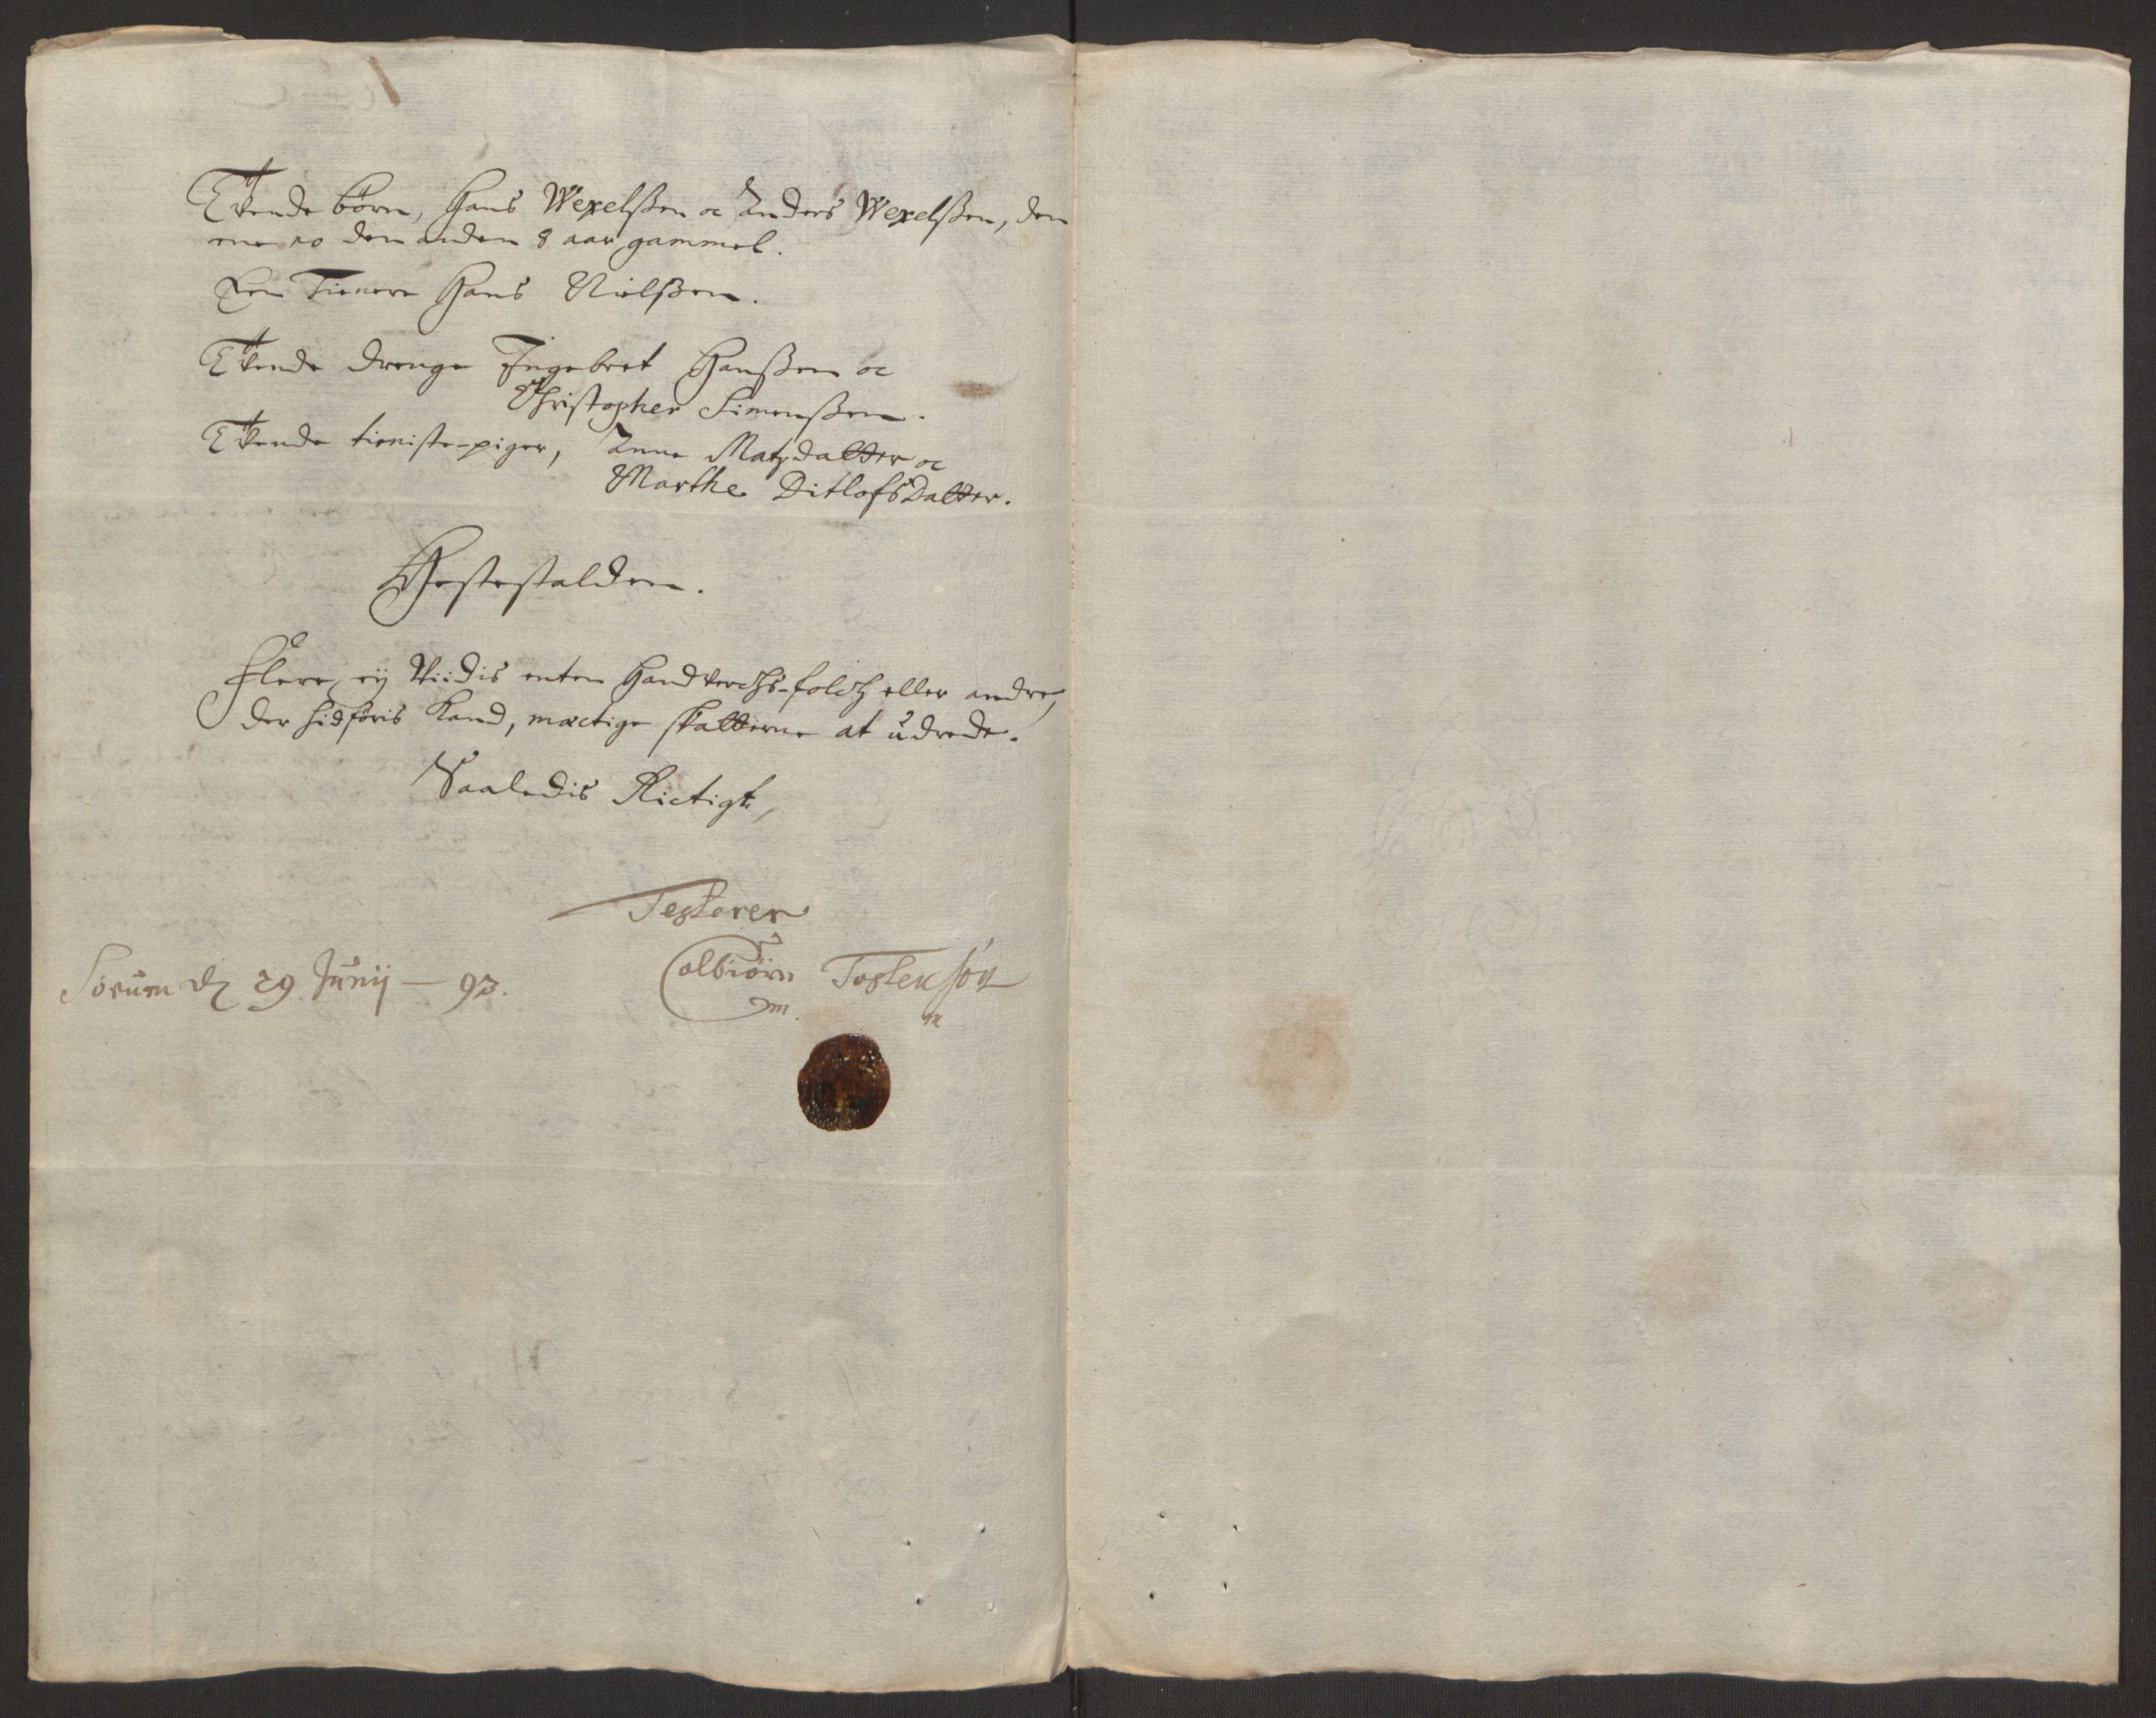 Tvende børn, Hans Wexelßen oc Anders Wexelßen, den
ene 10 den anden 8 aar gammel.
Een Tienere Hans Nielßen.
Tvende drenge Ingebret Hanßen oc
Christopher Simenßen.
Tvende tieniste-piger, Anne Matzdatter oc
Marthe Ditlofsdatter.
Hestestalden.
Flere eij Viidis enten Handverchs-folch eller andre,
der hidføris kand, mœctige skatterne at udrede.
Saaledis Rictigt,
Testerer
Sørum dz 29 Junij — 93.
Colbiørn Tostensøn
m. m